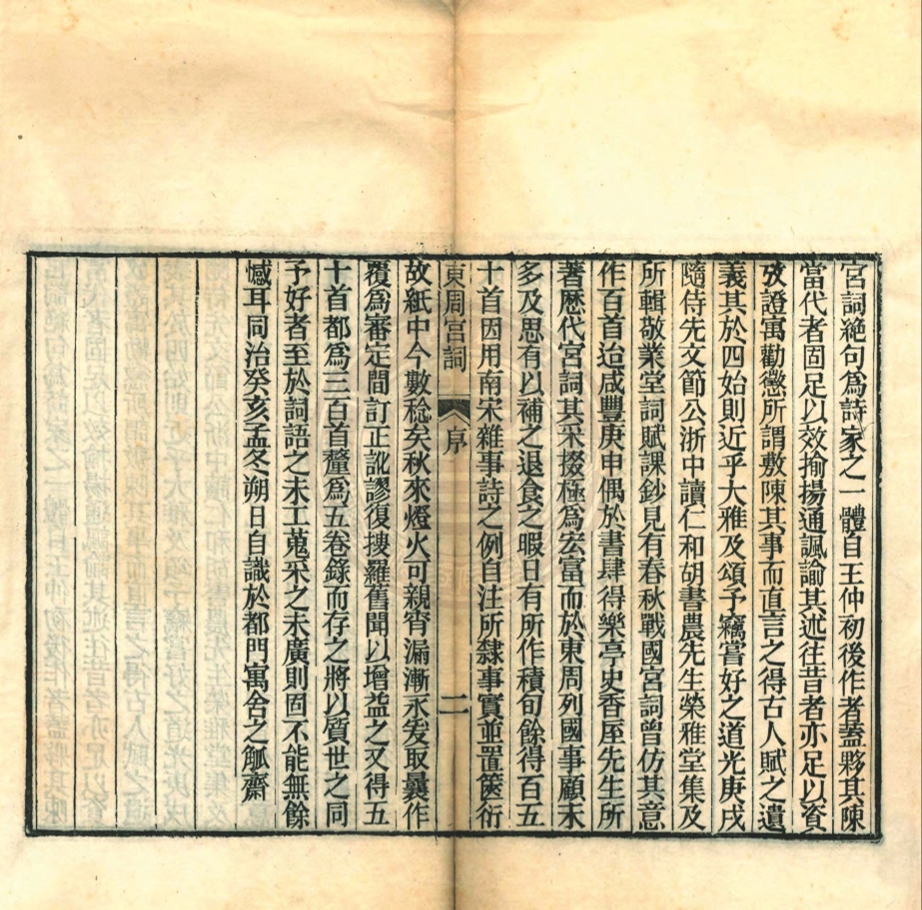 宮詞絕句為詩家之一體自王仲初後作者蓋夥其陳
當代者固足以效揄揚通諷諭其述往昔者亦足以資
攷證寓勸懲所謂敷陳其事而直言之得古人賦之遺
義其於四始則近乎大雅及頌予竊嘗好之道光庚戌
隨侍先文節公浙中讀仁和胡書農先生榮雅堂集及
所輯敬業堂詞賦課鈔見有春秋戰國宮詞曾仿其意
作百首迨咸豐庚申偶於書肆得樂亭史香厓先生所
著歷代宮詞其采掇極為宏富而於東周列國事顧未
多及思有以補之退食之暇日有所作積旬餘得百五
十首因用南宋雜事詩之例自注所隸事實並置篋衍
東周宮詞 序 二
故紙中今數稔矣秋來燈火可親宵漏漸永爰取曩作
覆為審定間訂正訛謬復搜羅舊聞以增益之又得五
十首都為三百首釐為五卷錄而存之將以質世之同
予好者至於詞語之未工蒐采之未廣則固不能無餘
憾耳同治癸亥孟冬朔日自識於都門寓舍之觚齋